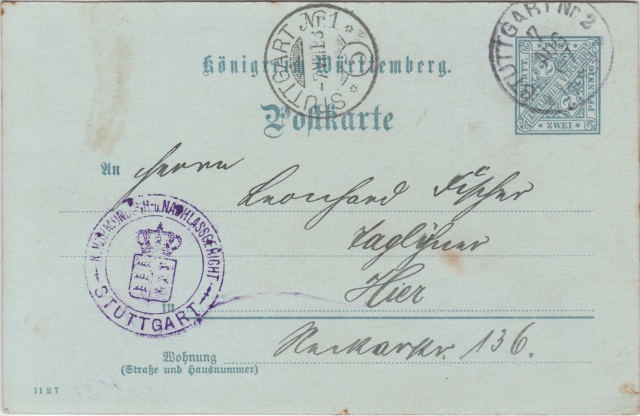 STUTTGART Nr. 1
STUTTGART Nr. 2
Königreich Württemberg.
Postkarte
ZWEI
PFENNIG
An Herrn
Leonhard Fischer
Taglöhner
Hier
in
K. VORMUNDSCH- u. NACHLASSGERICHT
STUTTGART
Neckarstr. 136.
Wohnung
(Straße und Hausnummer)
1127